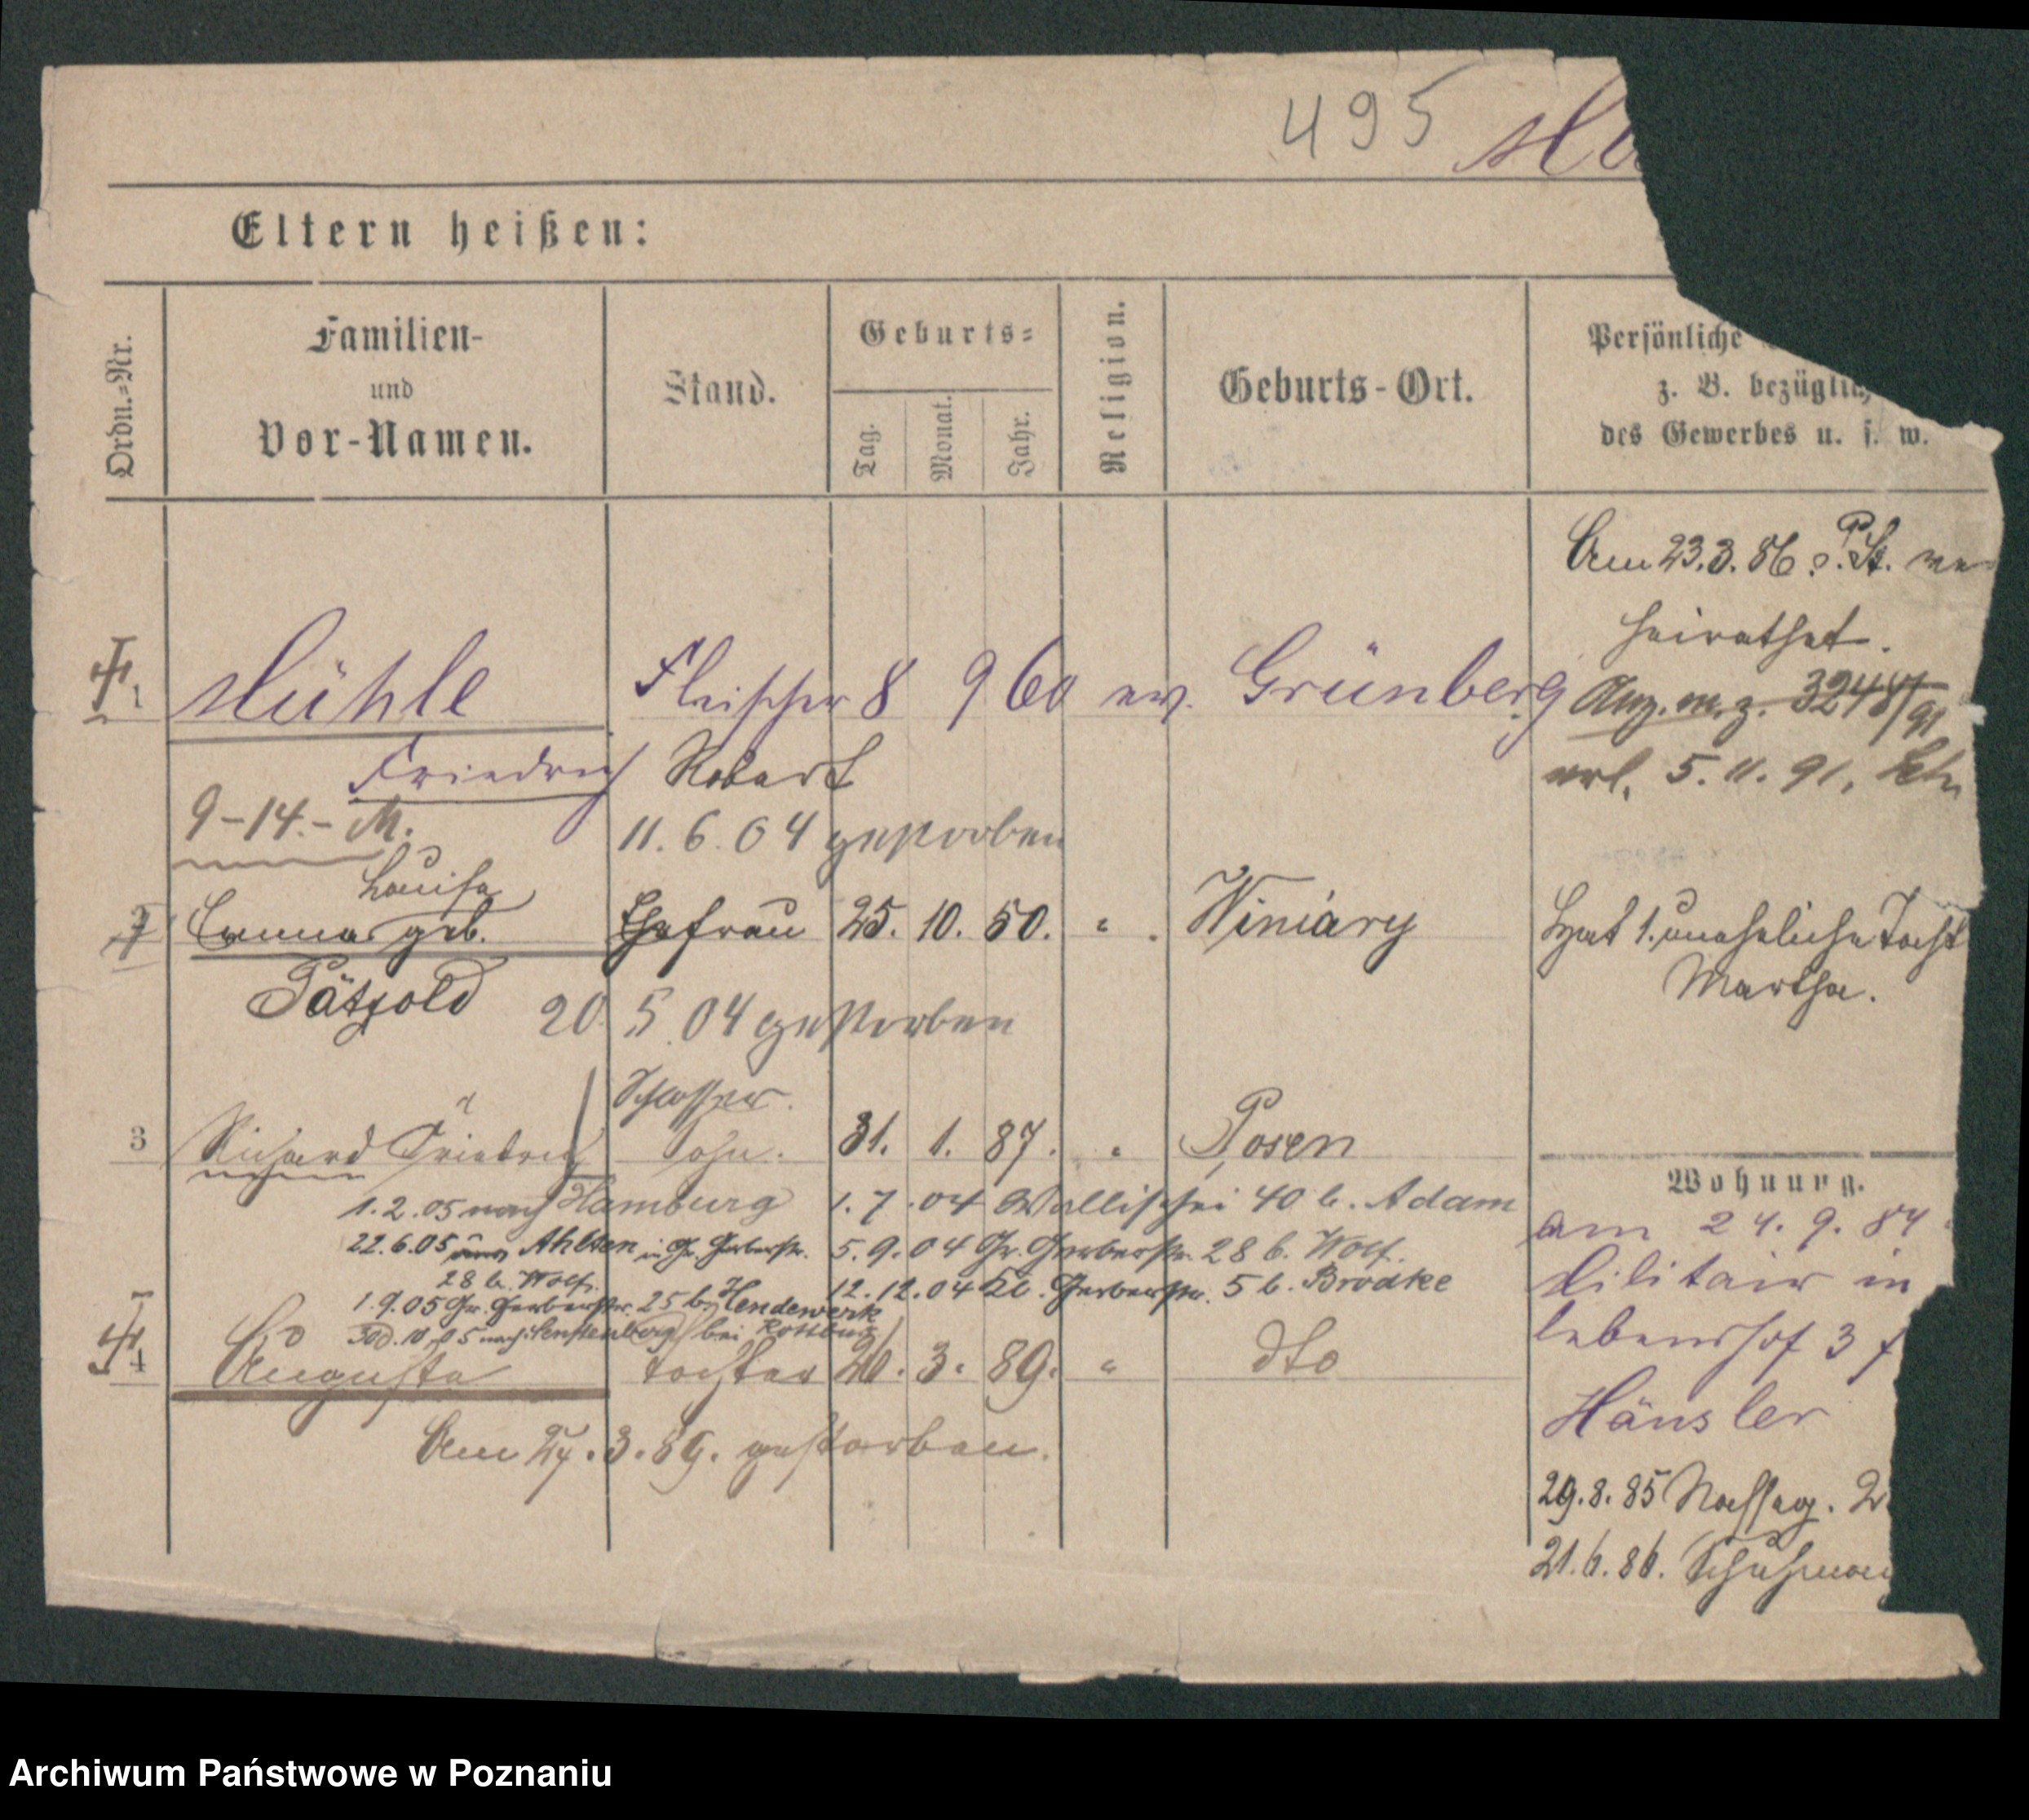 495 Mü
Eltern heißen:
Ordn.-Nr.
Familien-
und
Vor-Namen.
Stand.
Geburts-
Tag.
Monat.
Jahr.
Religion.
Geburts-Ort.
Persönliche
z. B. bezüglich
des Gewerbes u. s. w.
Am 23.3.86 P. St. ver
heirathet.
1 Mühle Fleischer 8 9 60 ev. Grünberg
Anz. m. z. 3248/91
Friedrich Robert
verl. 5.11.91.
9-14.- M.
11.6.04 gestorben
Louise
Emma geb. Ehefrau 25. 10. 50. " Winiary
Hat 1. uneheliche Tocht
Martha.
Pätzold
20. 5 04 gestorben
Schlosser.
3 Richard Friedrich Sohn. 31. 1. 87. " Posen
Wohnung.
1.2.05 nach Hamburg
1.7.04 Wallischei 40 b. Adam
22.6.05 Ahlten in Gr. Gerberstr.
28 b. Wolf.
5.9.04 Gr. Gerberstr. 28 b. Wolf.
12.12.04 Kl. Gerberstr. 5 b. Brodke
1.9.05 Gr. Gerberstr. 25 b. Hendewerk
30.10.05 nach Senftenberg bei Kottbus
4 Augusta tochter 26. 3. 89. " dto
Am 27.3.89. gestorben.
am 24.9.84
Militair in
lebenshof 3
Häusler
29.8.85 Nasseg. 2
21.6.86. Schuhmac
Archiwum Państwowe w Poznaniu